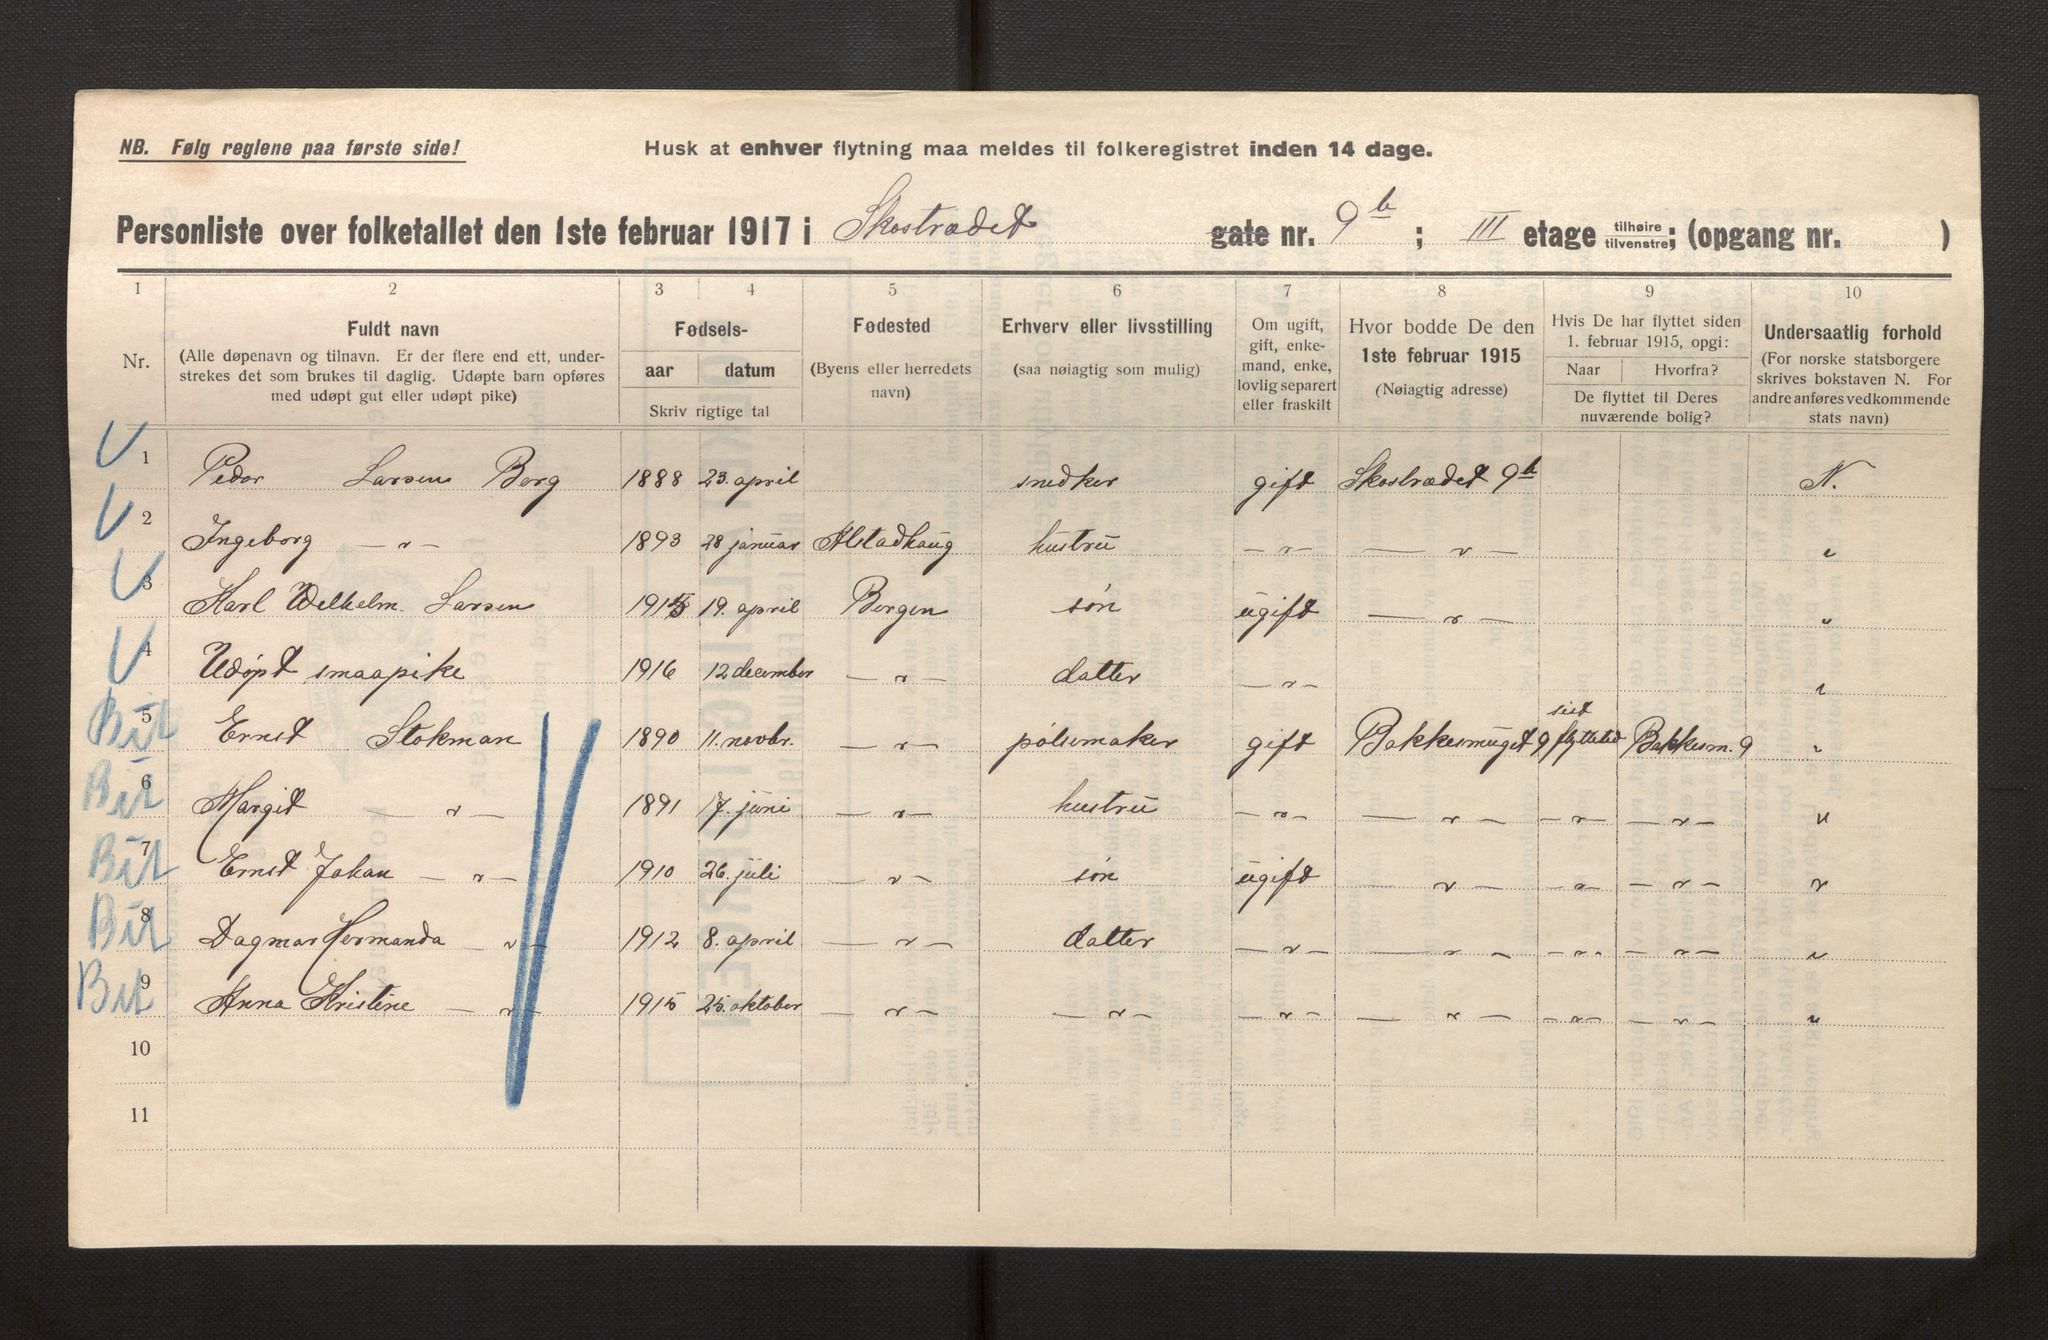 NB. Følg reglene paa første side!
Husk at enhver flytning maa meldes til folkeregistret inden 14 dage.
Personliste over folketallet den 1ste februar 1917 i Skostrædet gate nr. 9b ; III etage tilhøire tilvenstre ; (opgang nr. )
1 2 3 4 5 6 7 8 9 10
Nr.
Fuldt navn
(Alle døpenavn og tilnavn. Er der flere end ett, under-
strekes det som brukes til daglig. Udøpte barn opføres
med udøpt gut eller udøpt pike)
Fødsels-
aar datum
Skriv rigtige tal
Fødested
(Byens eller herredets
navn)
Erhverv eller livsstilling
(saa nøiagtig som mulig)
Om ugift,
gift, enke-
mand, enke,
lovlig separert
eller fraskilt
Hvor bodde De den
1ste februar 1915
(Nøiagtig adresse)
Hvis De har flyttet siden
1. februar 1915, opgi:
Naar Hvorfra?
De flyttet til Deres
nuværende bolig?
Undersaatlig forhold
(For norske statsborgere
skrives bokstaven N. For
andre anføres vedkommende
stats navn)
1 Peder Larsen Borg 1888 23. april snedker gift Skostrædet 9b N.
2 Ingeborg — „ — 1893 28 januar Alstadhaug hustru — „ — — „ — „
3 Karl Welhelm Larsen 1915 19. april Bergen søn ugift — „ — „
4 Udøpt smaapike 1916 12 december — „ — datter — „ — „
Bit 5 Ernst Stokman 1890 11. novbr. — „ — pølsemaker gift Bakkesmuget 9 sist flyttetid Bakkesm. 9 „
Bit 6 Margit — „ — 1891 17. juni — „ — hustru — „ — — „ — — „ — — „ — „
Bit 7 Ernst Johan — „ — 1910 26. juli — „ — søn ugift — „ — — „ — — „ — „
Bit 8 Dagmar Hermanda — „ — 1912 8. april — „ — datter — „ — — „ — — „ — — „ — „
Bit 9 Anna Kristine — „ — 1915 25. oktober — „ — — „ — — „ — — „ — — „ — — „ — „
10
11